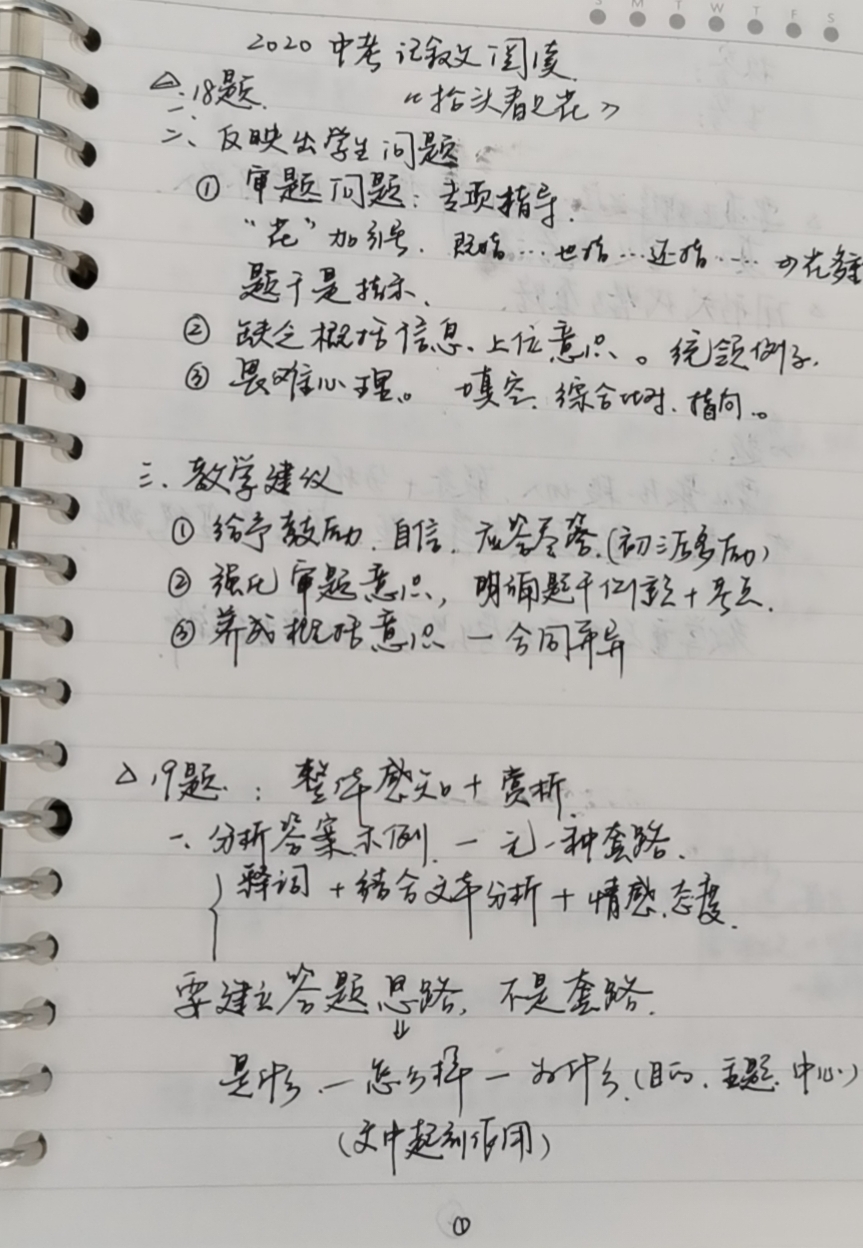 S M T W T F S
2020 中考记叙文阅读
△ 18题. 《抬头看见花》
二、反映出学生问题
① 审题问题：专项指导.
“花”加引号. 既指…也指…还指……
题干是指示.
② 缺乏概括信息、上位意识。统领例子.
③ 畏难心理。填空、综合比对、指向。
三、教学建议
① 给予鼓励、自信、应答尽答.(初三活动)
② 强化审题意识，明确题干侧重+考点.
③ 养成概括意识 — 合同并异
△ 19题：整体感知+赏析
一、分析答案示例. — 无一种套路.
释词+结合文章分析+情感、态度.
要建立答题思路，不是套路.
⇓
是什么.—怎么样—为什么.(目的、主题、中心)
(文中起到作用)
①